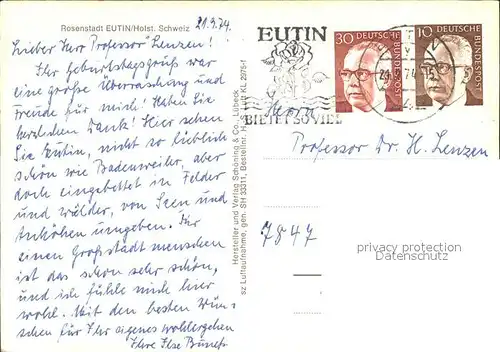 Rosenstadt EUTIN/Holst. Schweiz
21.9.74.
Lieber Herr Professor Lenzen!
Ihr Geburtstagsgruß war
eine große Überraschung und
Freude für mich! Haben Sie
herzlichen Dank! Hier sehen
Sie Eutin, nicht so lieblich
schön wie Badenweiler, aber
doch eingebettet in Felder
und Wälder, von Seen und
Anhöhen umgeben. Für
einen Großstadtmenschen
ist das schon sehr schön,
und ich fühle mich hier
wohl. Mit den besten Wün-
schen für Ihr eigenes Wohlergehen
Ihre Ilse
Hersteller und Verlag Schöning & Co., Lübeck
sz Luftaufnahme, gen. SH 33311, Bestellnr. H Luft KL 2976-f
EUTIN
BIETET SOVIEL
30 DEUTSCHE BUNDESPOST
10 DEUTSCHE BUNDESPOST
Herrn
Professor Dr. H. Lenzen
7847
privacy protection
Datenschutz